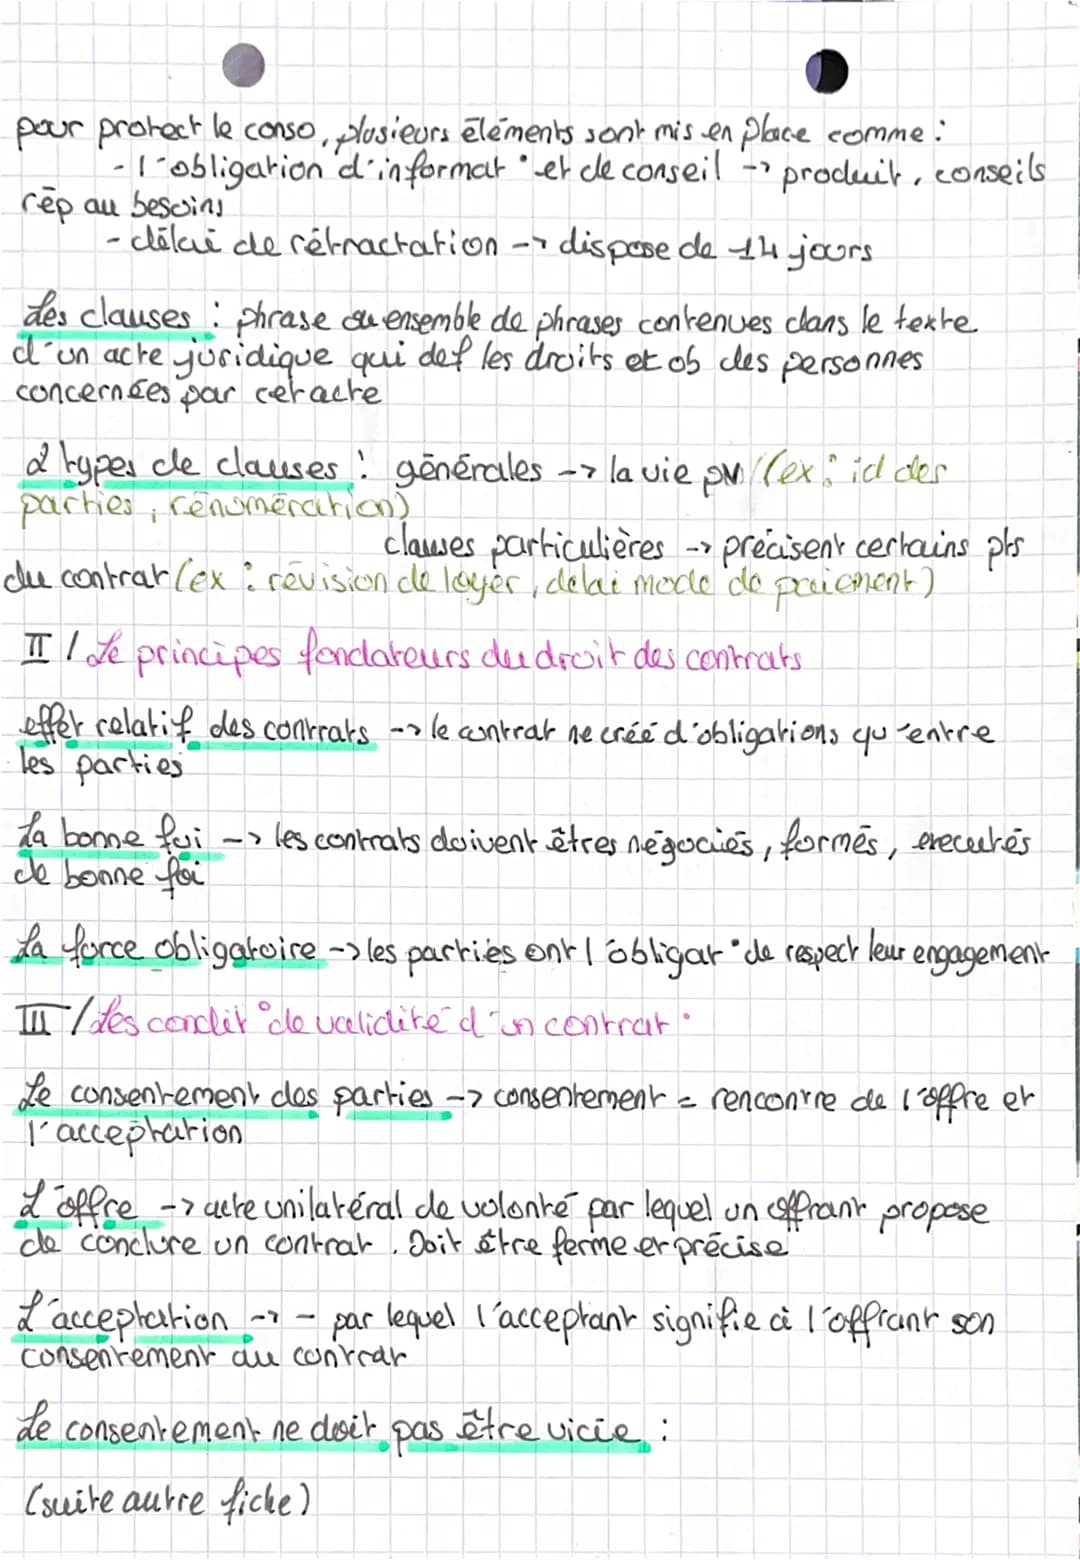 pour protect le conso, plusieurs éléments sont mis en place comme :
- l'obligation d'informat° et de conseil -> produit, conseils
rép au besoins
- délai de rétractation -> dispose de 14 jours
Les clauses : phrase ou ensemble de phrases contenues dans le texte
d'un acte juridique qui def les droits et ob des personnes
concernées par cet acte
2 types de clauses : générales -> la vie (ex : id des
parties, rénumération)
clauses particulières -> précisent certains pts
du contrat (ex : révision de loyer, délai mode de paiement)
II / Le principes fondateurs du droit des contrats
effet relatif des contrats -> le contrat ne créé d'obligations qu'entre
les parties
La bonne foi -> les contrats doivent êtres négociés, formés, executés
de bonne foi
La force obligatoire -> les parties ont l'obligat° de respect leur engagement
III / Les condit° de validité d'un contrat.
Le consentement des parties -> consentement = rencontre de l'offre et
l'acceptation
L'offre -> acte unilatéral de volonté par lequel un offrant propose
de conclure un contrat. Doit être ferme et précise
L'acceptation -> - par lequel l'acceptant signifie à l'offrant son
consentement au contrat
Le consentement ne doit pas être vicié :
(suite autre fiche)